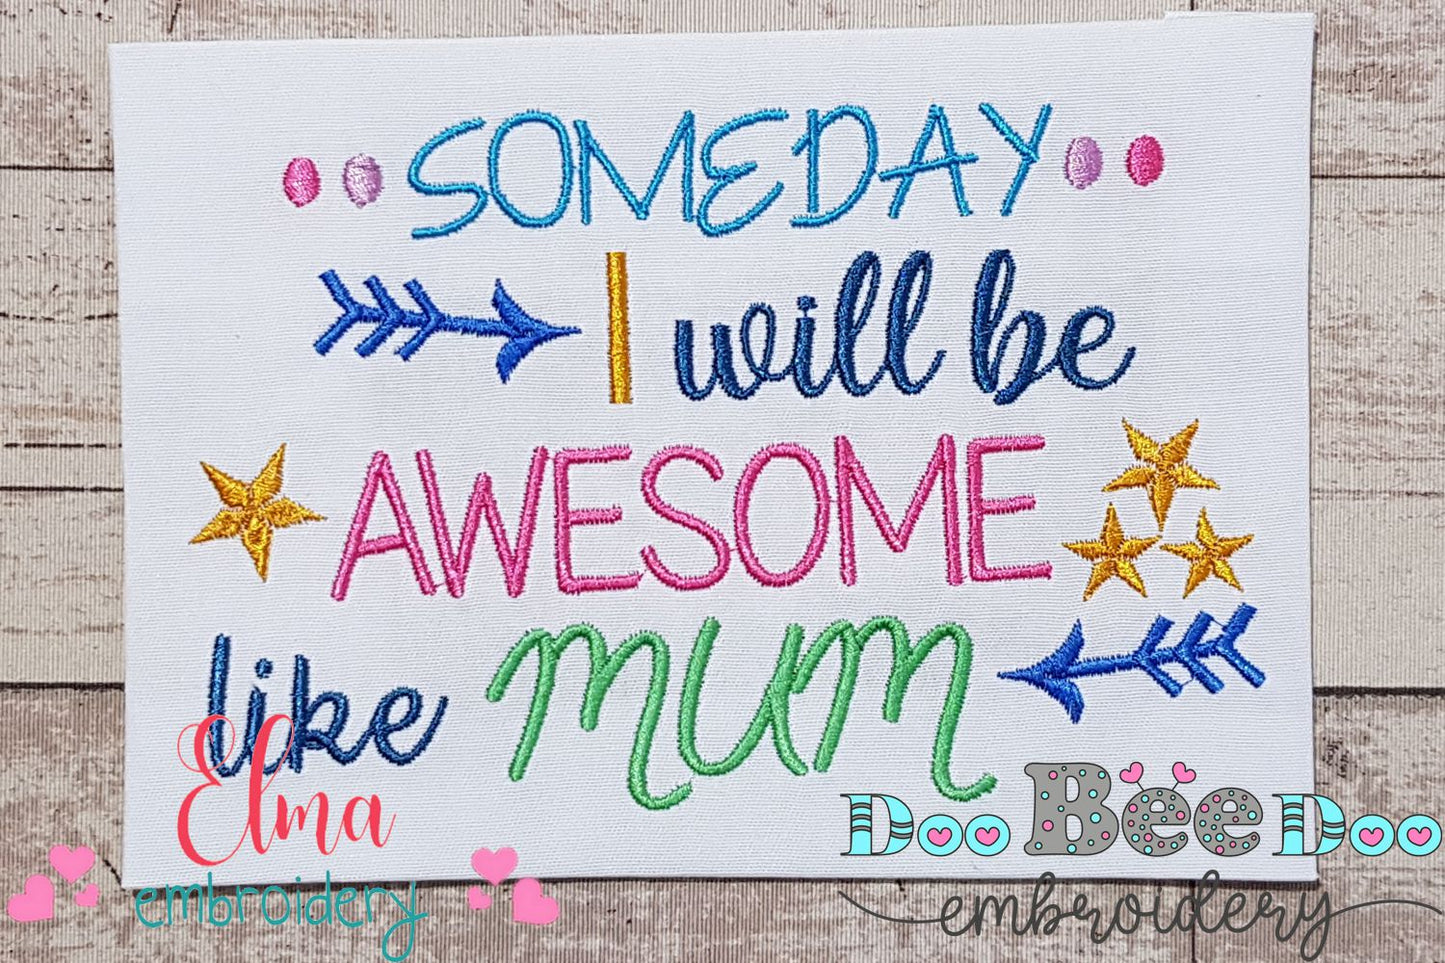 SOMEDAY
I will be
AWESOME
like MUM
Elma
embroidery
Doo Bee Doo
embroidery